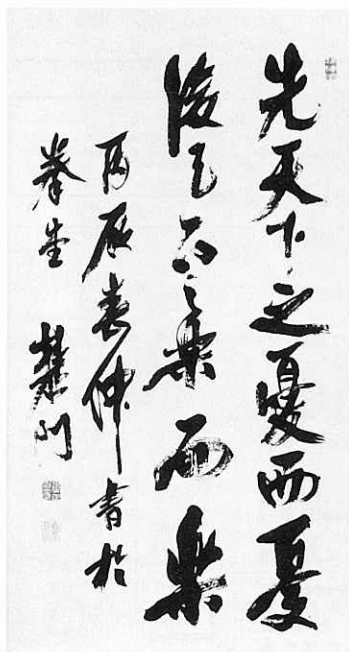 先天下之憂而憂
後天下之樂而樂
丙辰春仲書於
拳堂